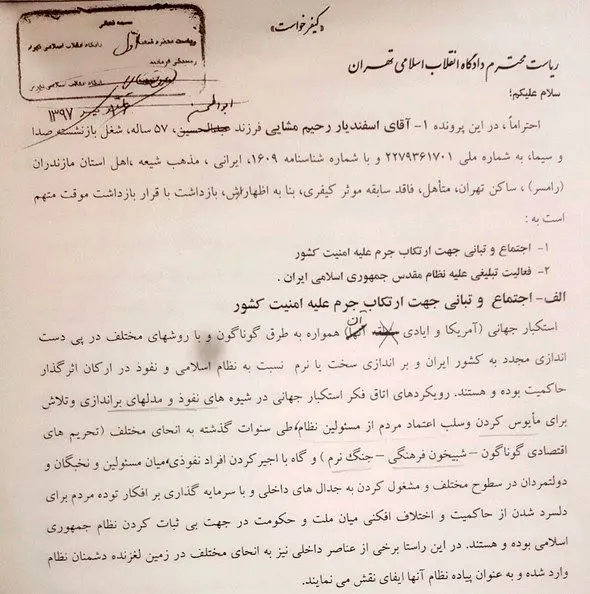 «کیفرخواست»
بسمه تعالی
ریاست محترم شعبه اول دادگاه انقلاب اسلامی تهران
رسیدگی فرمائید
دادگاه انقلاب اسلامی تهران
۱۳۹۷
ریاست محترم دادگاه انقلاب اسلامی تهران
سلام علیکم؛
ابوالحسن
احتراماً ، در این پرونده ۱- آقای اسفندیار رحیم مشایی فرزند عبدالحسین، ۵۷ ساله، شغل بازنشسته صدا
و سیما، به شماره ملی ۲۲۷۹۳۶۱۷۰۱ و با شماره شناسنامه ۱۶۰۹، ایرانی ، مذهب شیعه ،اهل استان مازندران
(رامسر) ، ساکن تهران، متأهل، فاقد سابقه موثر کیفری، بنا به اظهاراتش، بازداشت با قرار بازداشت موقت متهم
است به :
۱- اجتماع و تبانی جهت ارتکاب جرم علیه امنیت کشور
۲- فعالیت تبلیغی علیه نظام مقدس جمهوری اسلامی ایران .
الف- اجتماع و تبانی جهت ارتکاب جرم علیه امنیت کشور
استکبار جهانی (آمریکا و ایادی آن) همواره به طرق گوناگون و با روشهای مختلف در پی دست
اندازی مجدد به کشور ایران و بر اندازی سخت یا نرم نسبت به نظام اسلامی و نفوذ در ارکان اثرگذار
حاکمیت بوده و هستند. رویکردهای اتاق فکر استکبار جهانی در شیوه های نفوذ و مدلهای براندازی وتلاش
برای مأیوس کردن وسلب اعتماد مردم از مسئولین نظام،طی سنوات گذشته به انحای مختلف (تحریم های
اقتصادی گوناگون – شبیخون فرهنگی – جنگ نرم ) و گاه با اجیر کردن افراد نفوذی،میان مسئولین و نخبگان و
دولتمردان در سطوح مختلف و مشغول کردن به جدال های داخلی و با سرمایه گذاری بر افکار توده مردم برای
دلسرد شدن از حاکمیت و اختلاف افکنی میان ملت و حکومت در جهت بی ثبات کردن نظام جمهوری
اسلامی بوده و هستند. در این راستا برخی از عناصر داخلی نیز به انحای مختلف در زمین لغزنده دشمنان نظام
وارد شده و به عنوان پیاده نظام آنها ایفای نقش می نمایند.